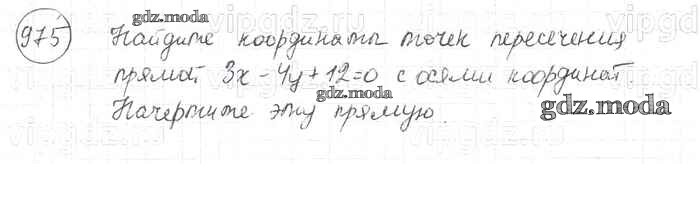 975 Найдите координаты точек пересечения
прямой 3x - 4y + 12 = 0 с осями координат
Начертите эту прямую.
gdz.moda
gdz.moda
gdz.moda